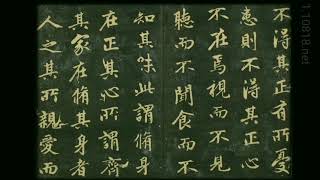 不得其正有所憂
患則不得其正心
不在焉視而不見
聽而不聞食而不
知其味此謂脩身
在正其心所謂齊
其家在脩其身者
人之其所親愛而
110818.net